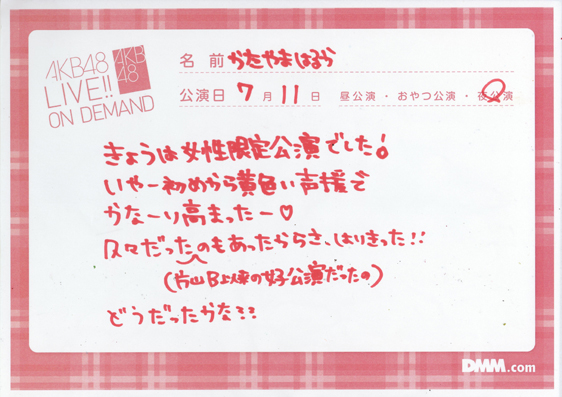 AKB48
LIVE!!
ON DEMAND
AKB
48
名 前 かたやまはるか
公演日 7 月 11 日 昼公演・おやつ公演・夜公演
きょうは女性限定公演でした!
いやー初めから黄色い声援で
かなーり高まったー♡
久々だったのもあったらさ、はりきった!!
(片山B以来の好公演だったの)
どうだったかな??
DMM.com